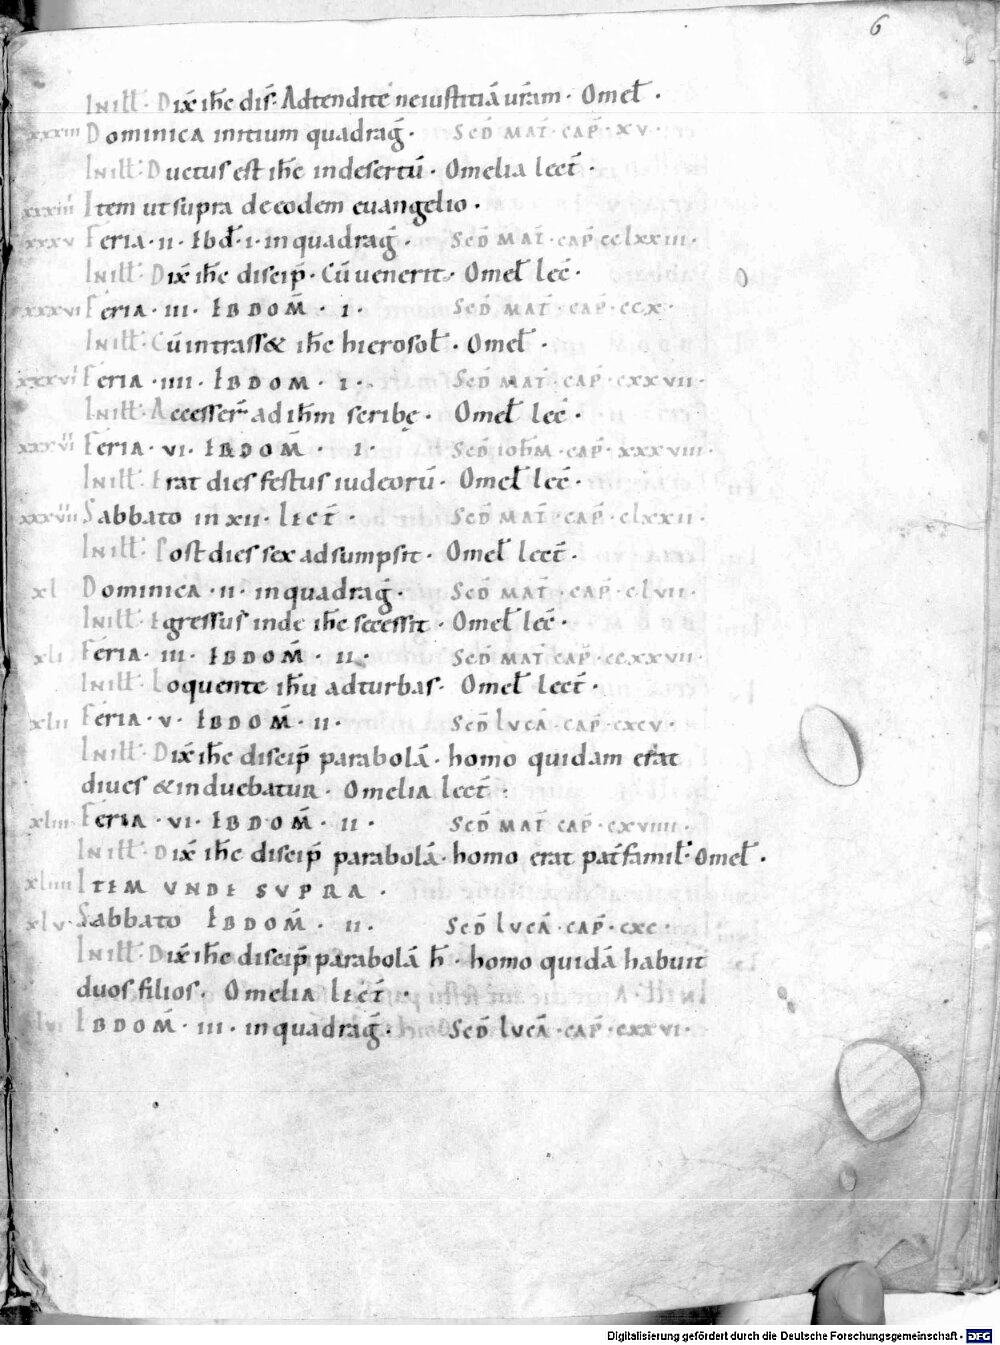 6
In ill̅. Dix̅ ih̅c dis̅. Adtendite ne iustitiā ur̅am. Omel̅.
xxxiii Dominica initium quadrag̅. Scd̅ mat̅. cap̅. xv.
In ill̅. Ductus est ih̅c in desertū. Omelia lect̅.
xxxiiii Item ut supra de eodem euangelio.
xxxv Feria. ii. Ebd̅. i. in quadrag̅. Scd̅ mat̅. cap̅. cclxxiii.
In ill̅. Dix̅ ih̅c discip̅. Cū uenerit. Omel̅ lec̅.
xxxvi Feria. iii. Ebdom̅. i. Scd̅ mat̅. cap̅. ccx.
In ill̅. Cū intrass& ih̅c hierosol̅. Omel̅.
Feria. iiii. Ebdom. i. Scd̅ mat̅. cap̅. cxxvii.
In ill̅. Accesser̅ ad ih̅m scribę. Omel̅ lec̅.
Feria. vi. Ebdom̅. i. Scd̅ ioh̅m. cap̅. xxxviii.
In ill̅. Erat dies festus iudeorū. Omel̅ lec̅.
Sabbato in xii. lect̅. Scd̅ mat̅. cap̅. clxxii.
In ill̅. Post dies sex adsumpsit. Omel̅ lect̅.
xl Dominica. ii. in quadrag̅. Scd̅ mat̅. cap̅. clvii.
In ill̅. Egressus inde ih̅c secessit. Omel̅ lec̅.
xli Feria. iii. Ebdom̅. ii. Scd̅ mat̅ cap̅. ccxxvii.
In ill̅. Loquente ih̅u ad turbas. Omel̅ lect̅.
xlii Feria. v. Ebdom̅. ii. Scd̅ lucā. cap̅. cxcv.
In ill̅. Dix̅ ih̅c discip̅ parabolā. homo quidam erat
diues & induebatur. Omelia lect̅.
xliii Feria. vi. Ebdom̅. ii. Scd̅ mat̅ cap̅. cxviiii.
In ill̅. Dix̅ ih̅c discip̅ parabolā. homo erat pat̅ famil̅. Omel̅.
xliiii Item unde supra.
xlv Sabbato Ebdom̅. ii. Scd̅ lucā. cap̅. cxc.
In ill̅. Dix̅ ih̅c discip̅ parabolā h̅. homo quidā habuit
duos filios. Omelia lect̅.
xlvi Ebdom̅. iii. in quadrag̅. Scd̅ lucā. cap̅. cxxvi.
Digitalisierung gefördert durch die Deutsche Forschungsgemeinschaft - DFG